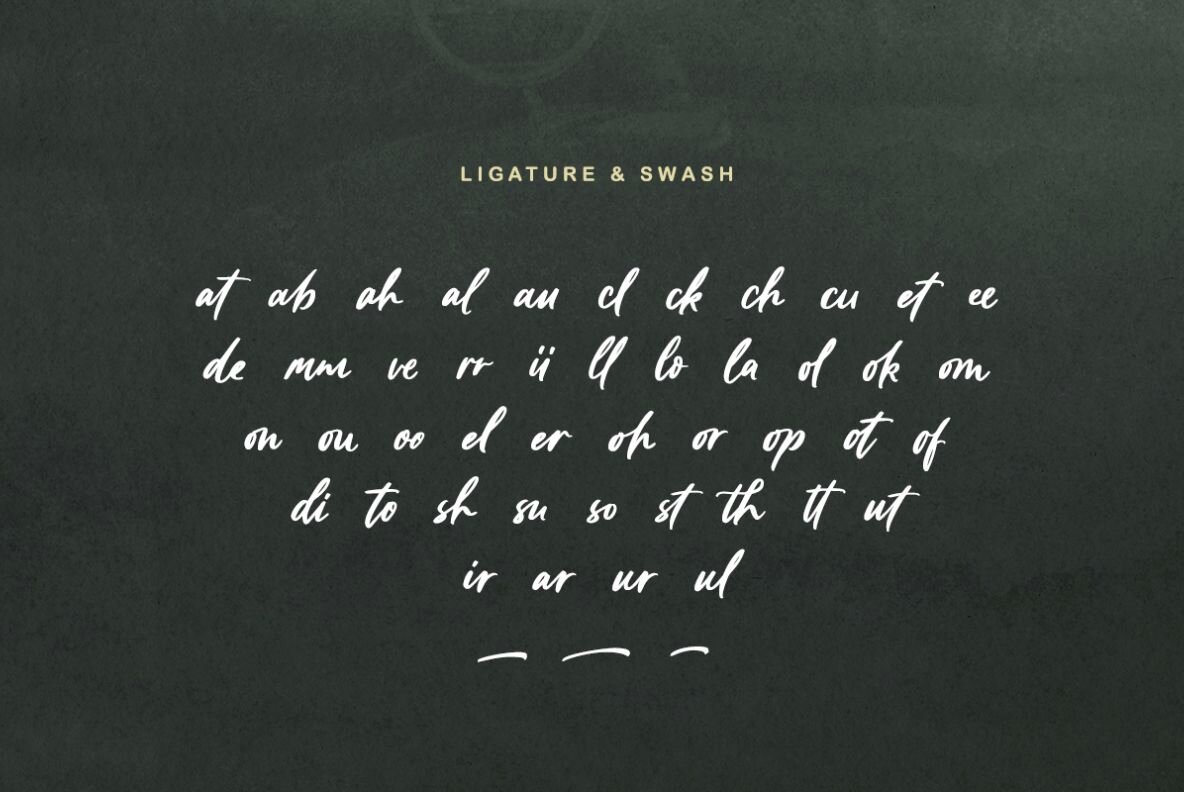 LIGATURE & SWASH
at ab ah al au cl ck ch cu et ee
de mm ve rr ii ll lo la ol ok om
on ou oo el er oh or op ot of
di to sh su so st th tt ut
ir ar ur ul